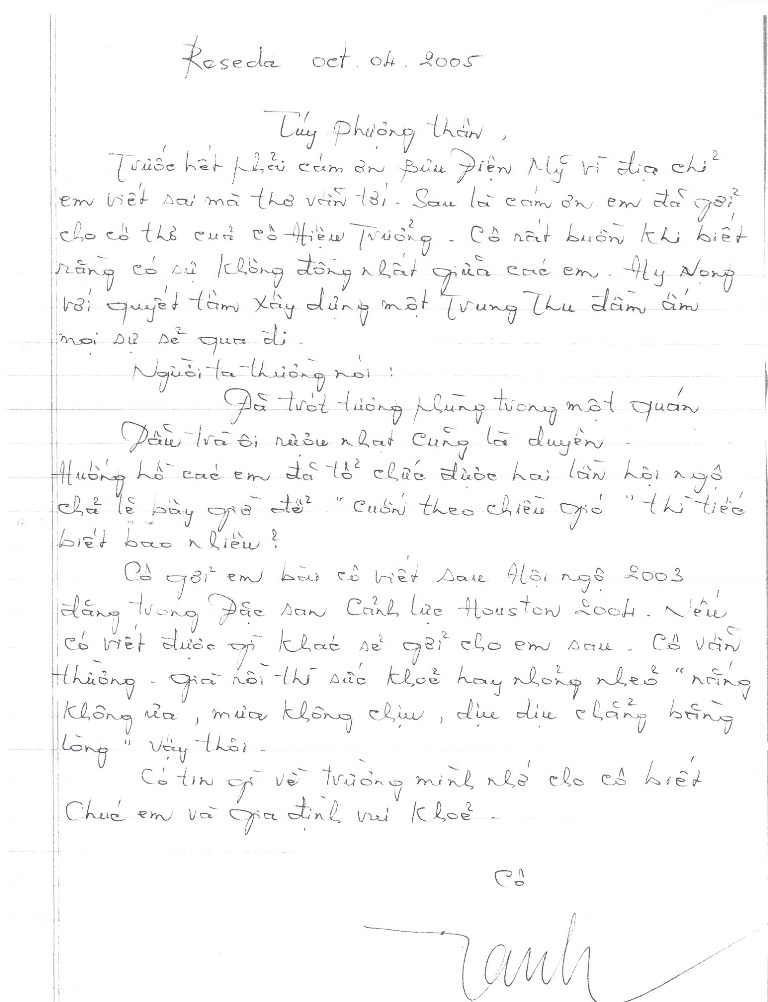 Reseda oct. 04. 2005
Túy Phượng thân,
Trước hết phải cám ơn Bưu Điện Mỹ vì địa chỉ
em viết sai mà thơ vẫn tới. Sau là cám ơn em đã gởi
cho cô thơ của cô Hiệu Trưởng. Cô rất buồn khi biết
rằng có sự không đồng nhất giữa các em. Hy vọng
với quyết tâm xây dựng một Trung Thu đầm ấm
mọi sự sẽ qua đi.
Người ta thường nói:
Đã trót tương phùng trong một quán
Dẫu trà ôi rượu nhạt cũng là duyên
Huống hồ các em đã tổ chức được hai lần hội ngộ
chả lẽ bây giờ để "cuốn theo chiều gió" thì tiếc
biết bao nhiêu?
Cô gởi em bài cô viết sau Hội ngộ 2003
đăng trong Đặc san Cảnh lực Houston 2004. Nếu
có viết được gì khác sẽ gởi cho em sau. Cô vẫn
thường. già rồi thì sức khoẻ hay nhõng nhẽo "nắng
không ưa, mưa không chịu, dịu dịu chẳng bằng
lòng" vậy thôi.
Có tin gì về trường mình nhớ cho cô biết
Chúc em và gia đình vui khoẻ.
Cô